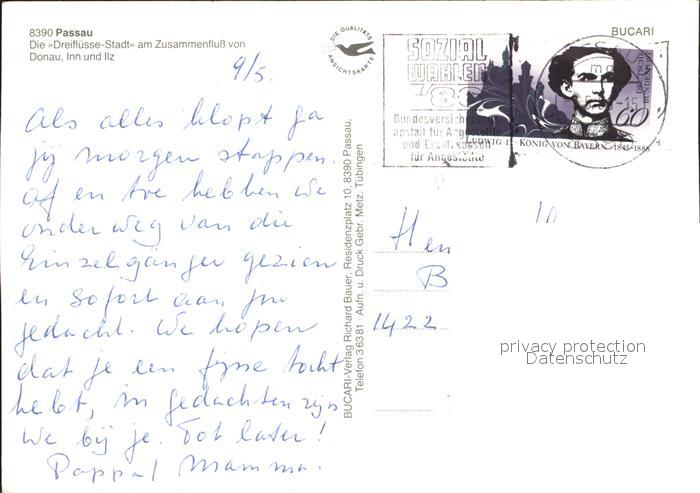 8390 Passau
Die »Dreiflüsse-Stadt« am Zusammenfluß von
Donau, Inn und Ilz
9/5.
Als alles klopt ga
jij morgen stappen.
af en toe hebben we
onderweg van die
Einzelgänger gezien
en sofort aan jou
gedacht. We hopen
dat je een fijne tocht
hebt, in gedachten zijn
we bij je. Tot later!
Pappa / Mamma.
BUCARI-Verlag Richard Bauer, Residenzplatz 10, 8390 Passau,
Telefon 36381 · Aufn. u. Druck Gebr. Metz, Tübingen
DIE QUALITÄTS
ANSICHTSKARTE
BUCARI
SOZIAL
WAHLEN
'86
Bundesversicherungs
anstalt für Angestellte
und Ersatzkassen
für Angestellte
DEUTSCHE
BUNDESPOST
60
LUDWIG II. · KÖNIG VON BAYERN · 1845-1886
Hen
B
1422
privacy protection
Datenschutz